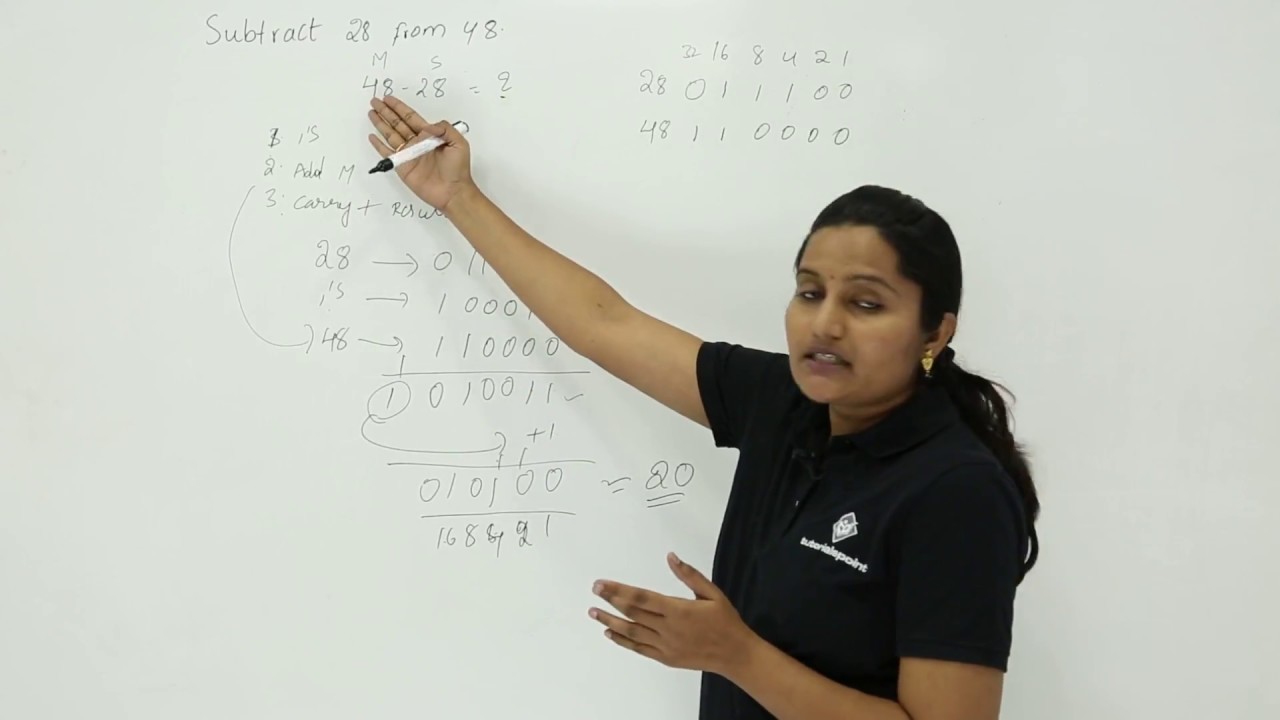 Subtract 28 from 48.
M S
48 - 28 = ?
1's
2. Add M
3. Carry + Resul
28 → 0 1 1
1's → 1 0 0 0 1
48 → 1 1 0 0 0 0
1
1 0 1 0 0 1 1
+1
1 1
0 1 0 1 0 0 = 20
16 8 4 2 1
32 16 8 4 2 1
28 0 1 1 1 0 0
48 1 1 0 0 0 0
tutorialspoint